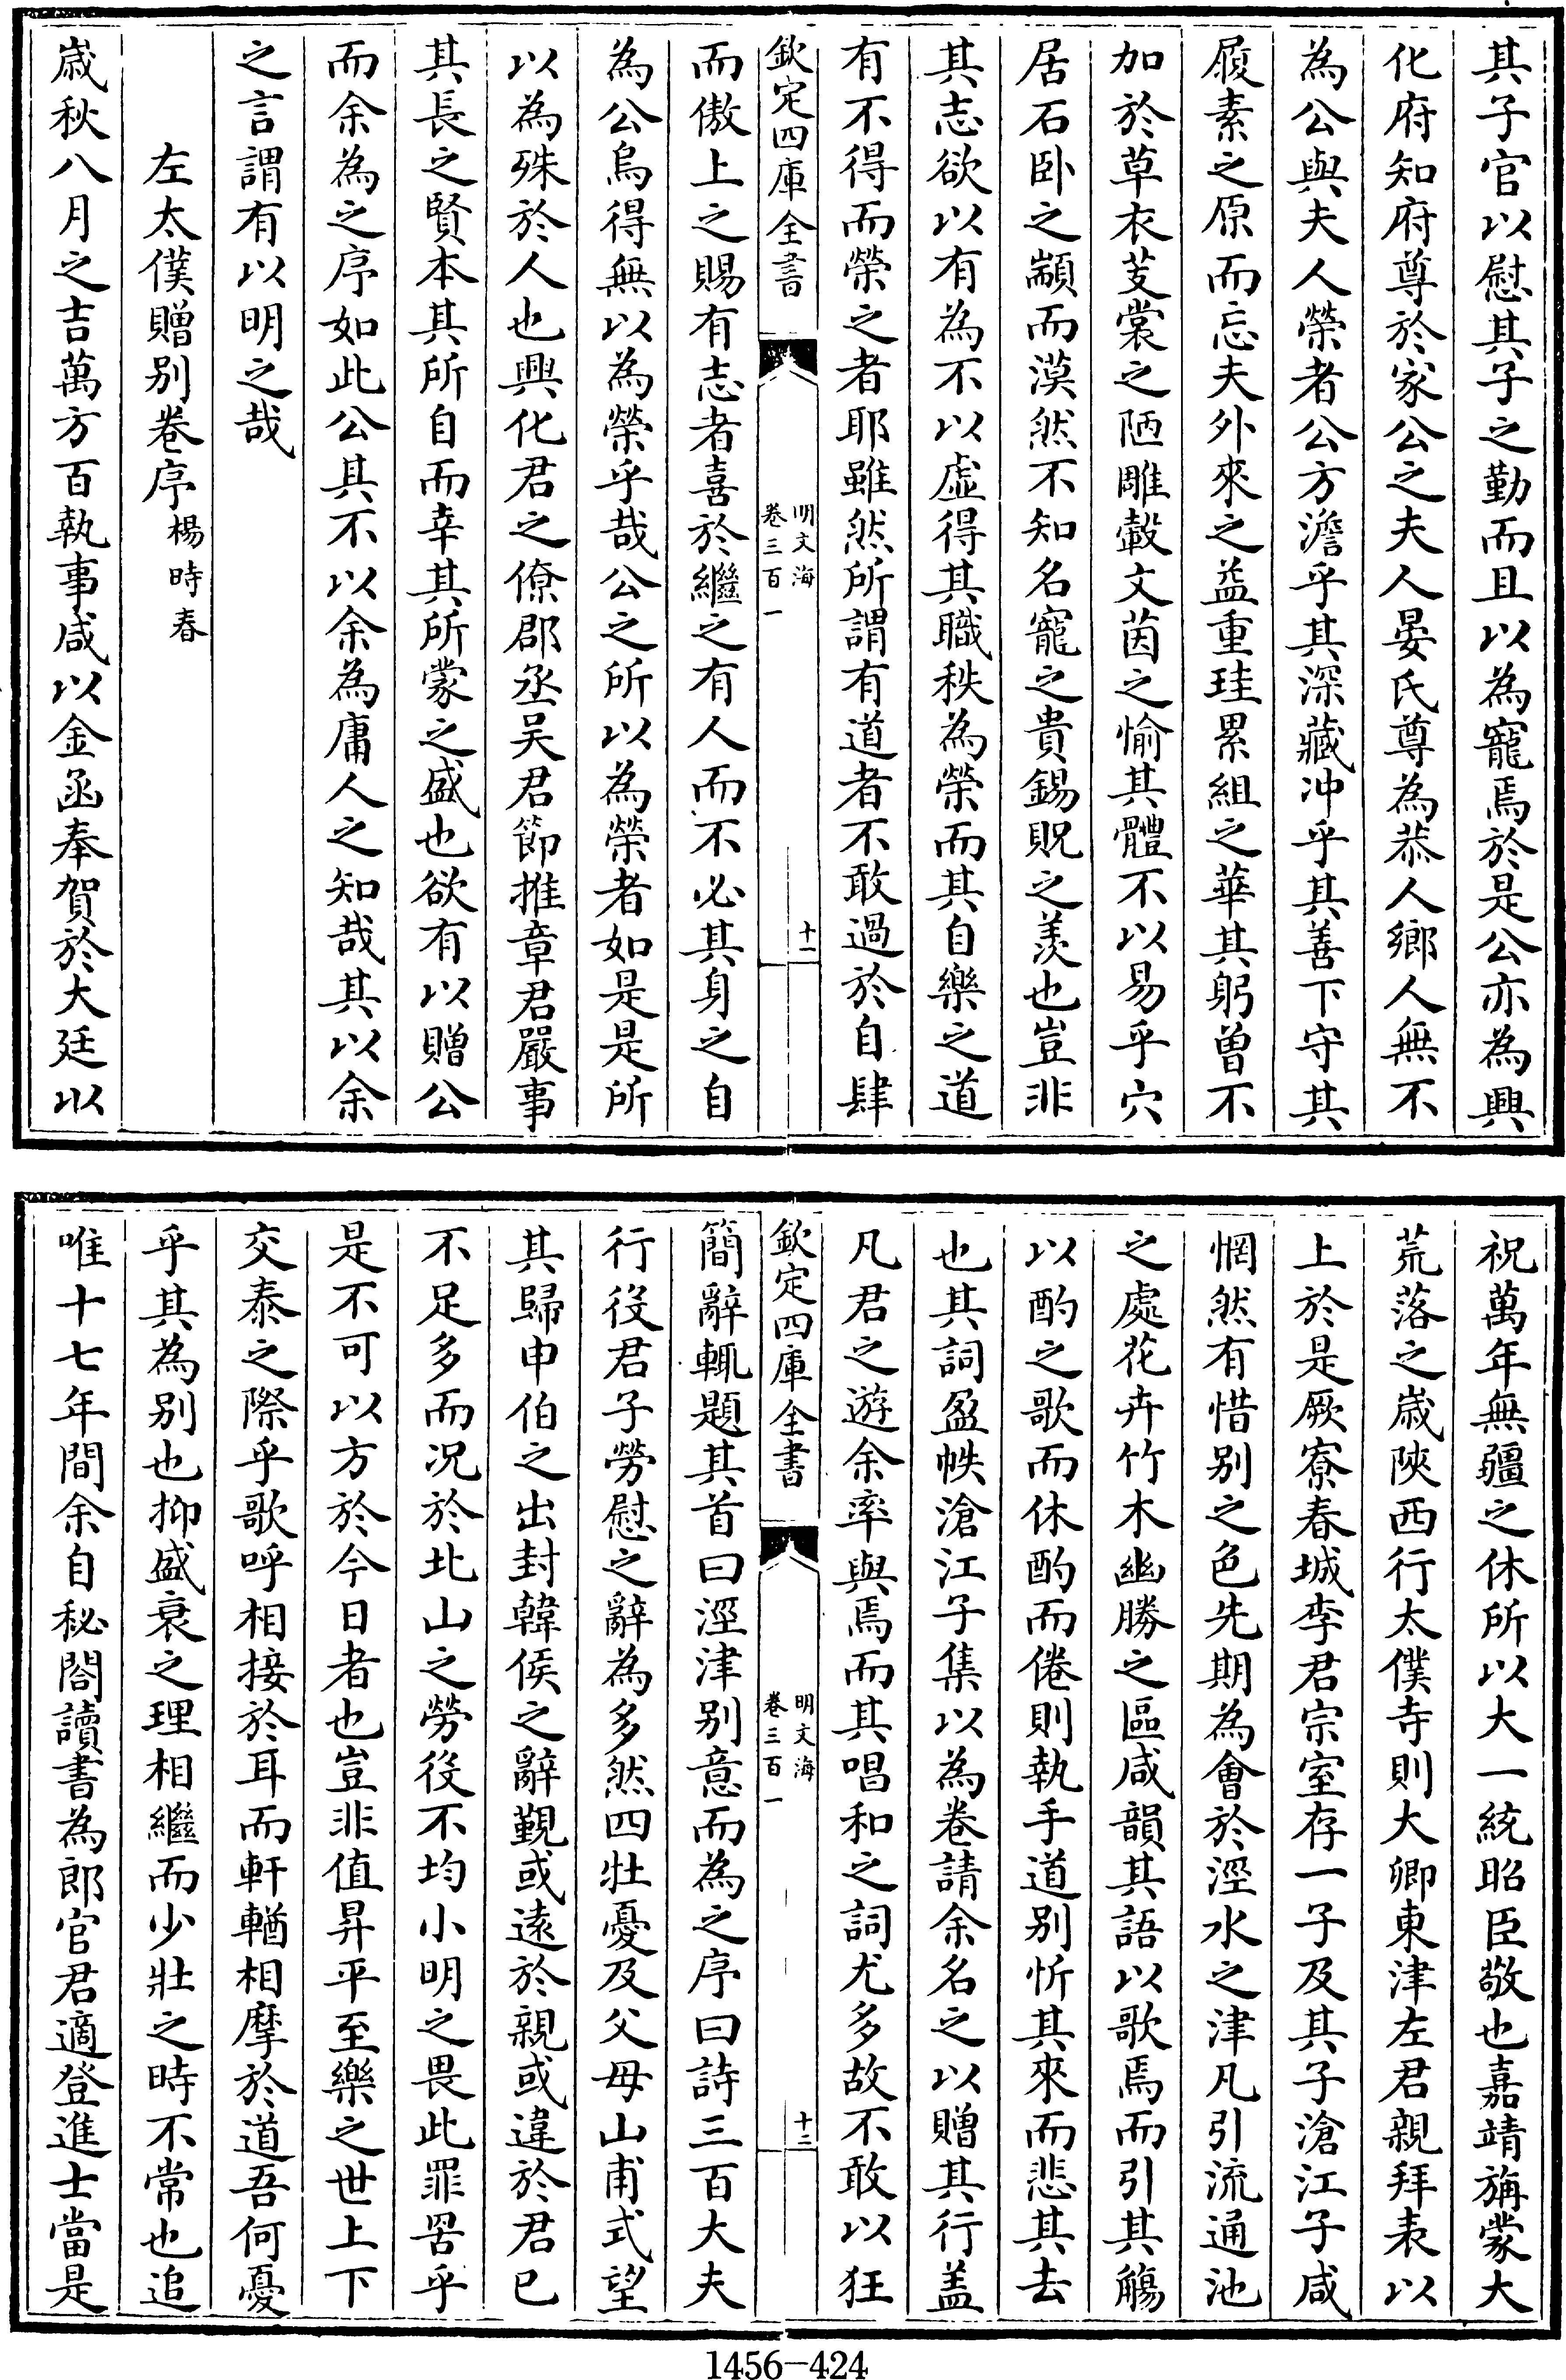 其子官以慰其子之勤而且以為寵焉於是公亦為興
化府知府尊於家公之夫人晏氏尊為恭人鄉人無不
為公與夫人榮者公方澹乎其深藏冲乎其善下守其
履素之原而忘夫外來之益重珪累組之華其躬曽不
加於草衣芰裳之陋雕轂文茵之愉其體不以易乎穴
居石卧之顓而漠然不知名寵之貴錫貺之羨也豈非
其志欲以有為不以虚得其職秩為榮而其自樂之道
有不得而榮之者耶雖然所謂有道者不敢過於自肆
欽定四庫全書
明文海
卷三百一
十一
而傲上之賜有志者喜於繼之有人而不必其身之自
為公烏得無以為榮乎哉公之所以為榮者如是是所
以為殊於人也興化君之僚郡丞吴君節推章君嚴事
其長之賢本其所自而幸其所蒙之盛也欲有以贈公
而余為之序如此公其不以余為庸人之知哉其以余
之言謂有以明之哉
左太僕贈别卷序 楊時春
歳秋八月之吉萬方百執事咸以金函奉賀於大廷以
祝萬年無疆之休所以大一統昭臣敬也嘉靖旃蒙大
荒落之歳陜西行太僕寺則大卿東津左君親拜表以
上於是厥寮春城李君宗室存一子及其子滄江子咸
惘然有惜别之色先期為會於涇水之津凡引流通池
之處花卉竹木幽勝之區咸韻其語以歌焉而引其觴
以酌之歌而休酌而倦則執手道别忻其來而悲其去
也其詞盈帙滄江子集以為卷請余名之以贈其行盖
凡君之遊余率與焉而其唱和之詞尤多故不敢以狂
欽定四庫全書
明文海
卷三百一
十二
簡辭輒題其首曰涇津别意而為之序曰詩三百大夫
行役君子勞慰之辭為多然四壯憂及父母山甫式望
其歸申伯之出封韓侯之辭覲或遠於親或違於君已
不足多而况於北山之勞役不均小明之畏此罪罟乎
是不可以方於今日者也豈非值昇平至樂之世上下
交泰之際乎歌呼相接於耳而軒輶相摩於道吾何憂
乎其為别也抑盛衰之理相繼而少壯之時不常也追
唯十七年間余自秘閣讀書為郎官君適登進士當是
1456-424